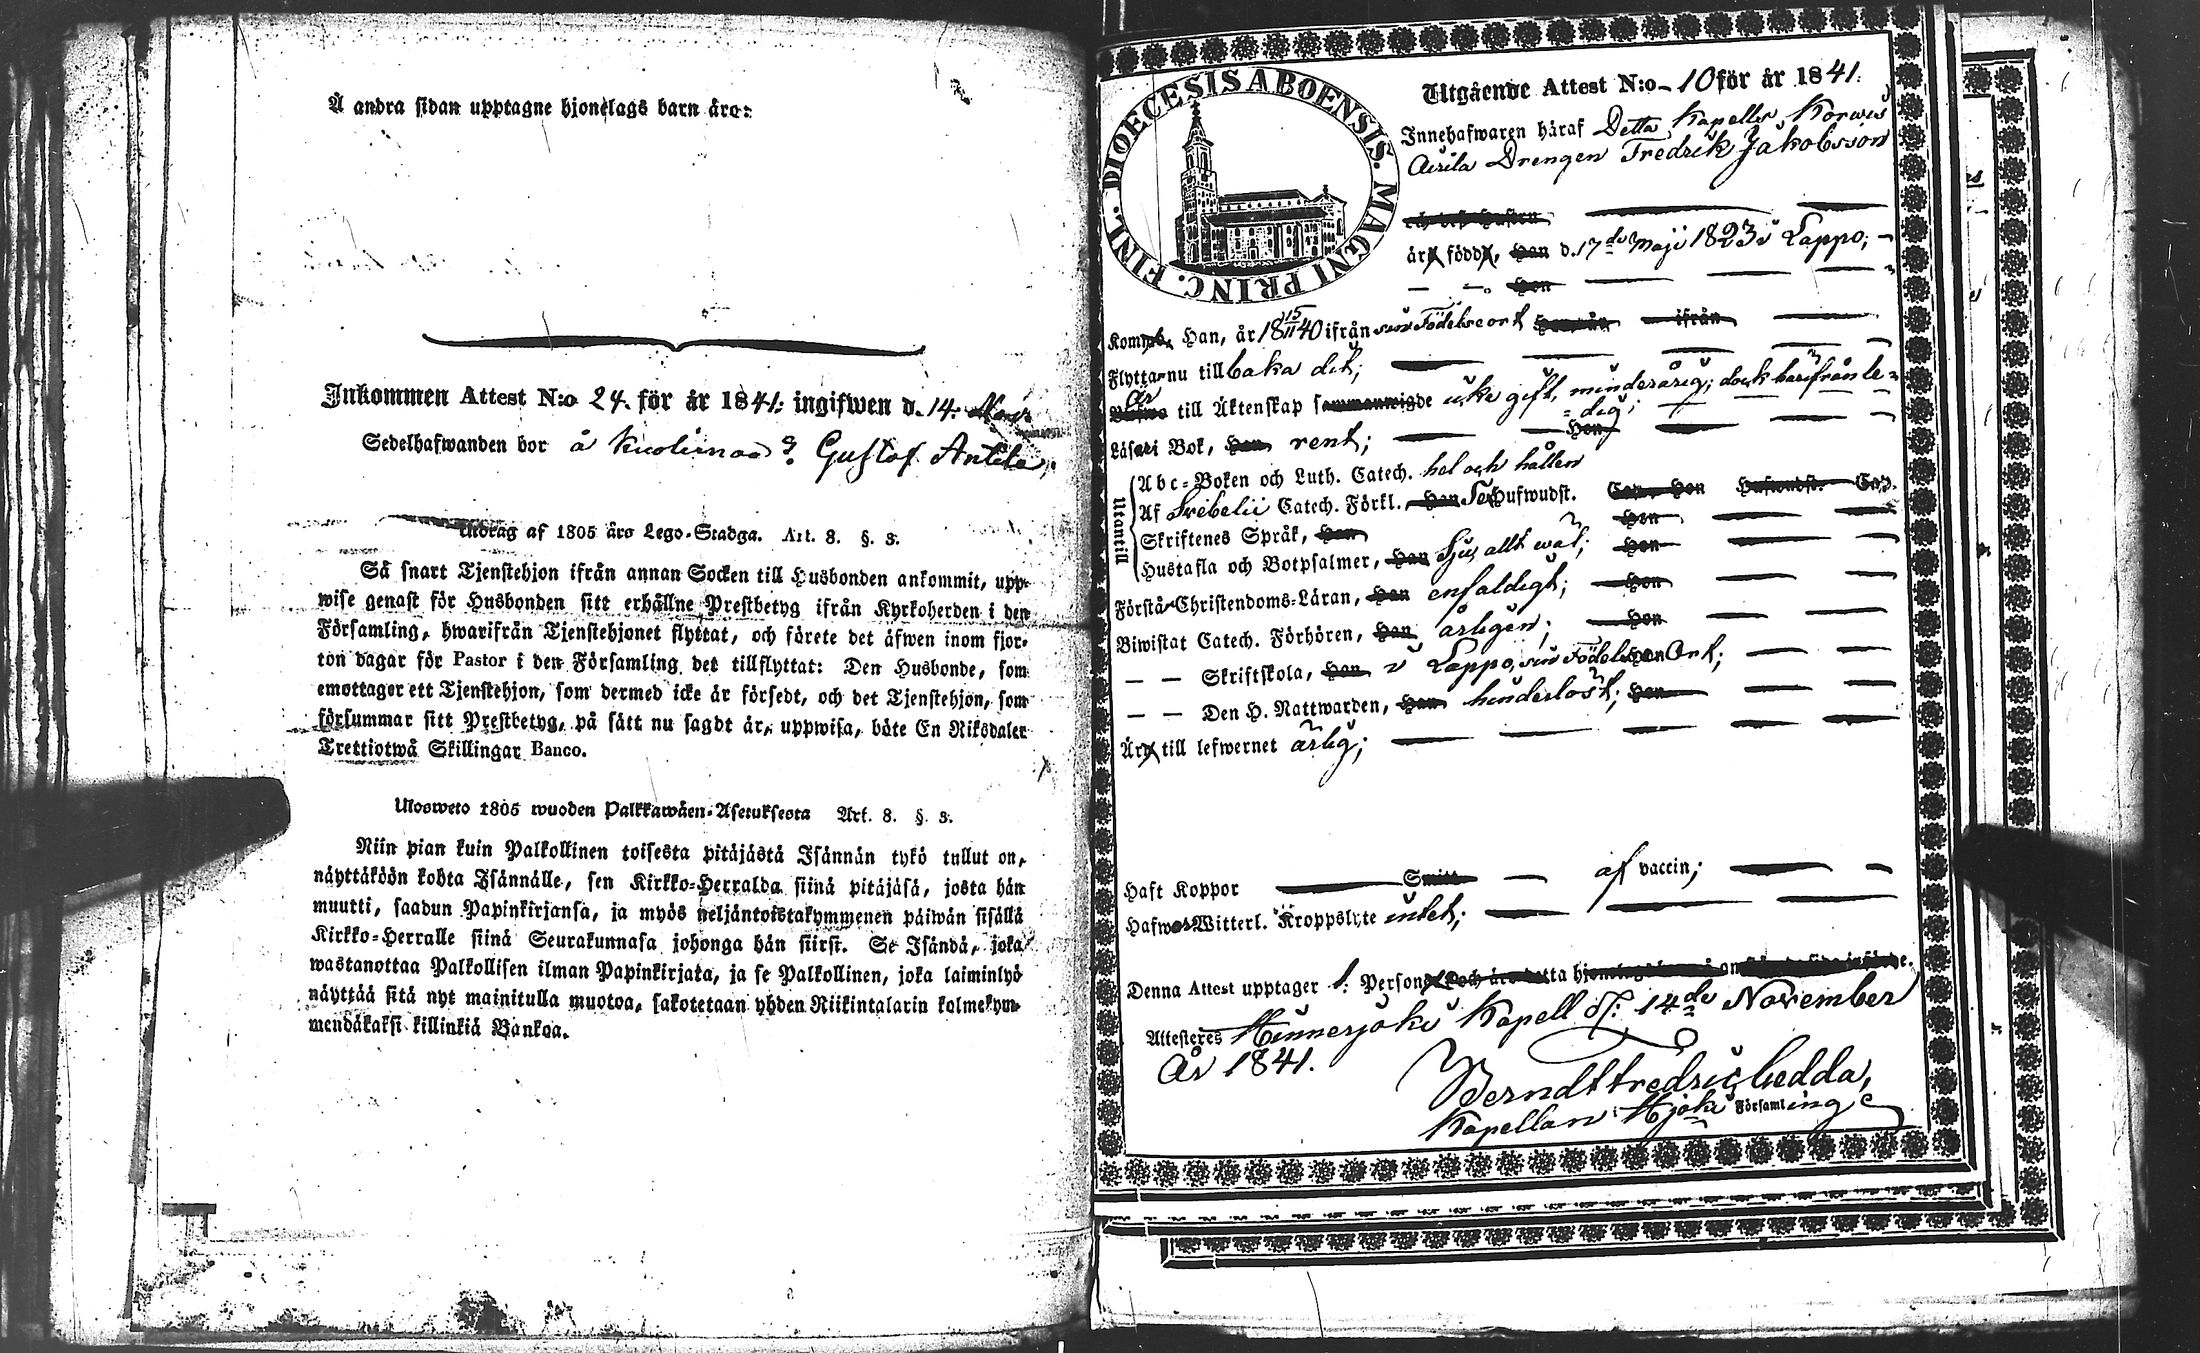 Å andra sidan upptagne hjonelags barn äro:
Inkommen Attest N:o 24. för år 1841: ingifwen d. 14:
Sedelhafwanden bor å Gustaf Antila
Utdrag af 1805 års Lego-Stadga. Art. 8. §. 3.
Så snart Tjenstehjon ifrån annan Socken till Husbonden ankommit, upp-
wise genast för Husbonden sitt erhållne Prestbetyg ifrån Kyrkoherden i den
Församling, hwarifrån Tjenstehjonet flyttat, ochförete det äfwen inom fjor-
ton dagar för Pastor i den Församling det tillflyttat: Den Husbonde, som
emottager ett Tjenstehjon, som dermed icke är försedt, och det Tjenstehjon, som
försummar sitt Prestbetyg, på sätt nu sagdt är, uppwisa, böte En Riksdaler
Trettiotwå Skillingar Banco.
Ulosweto 1805 wuoden Palkkawäen-Asetuksesta Art. 8. §. 3.
Niin pian kuin Palkollinen toisesta pitäjästä Isännän tykö tullut on,
näyttäköön kohta Isännälle, sen Kirkko-Herralda siinä pitäjäsä, josta hän
muutti, saadun Papinkirjansa, ja myös neljäntoistakymmenen päiwän sisällä
Kirkko-Herralle siinä Seurakunnasa johonga hän siirst. Se Isändä, joka
wastanottaa Palkollisen ilman Papinkirjata, ja se Palkollinen, joka laiminlyö
näyttää sitä nyt mainitulla muotoa, sakotetaan yhden Riikintalarin kolmekym-
mendäkaksi killinkiä Bankoa.
DIOECESIS ABOENSIS. MAGNI PRINC. FINL.
Utgående Attest N:o 10 för år 1841.
Innehafwaren häraf Detta Kapells Korwis
Aisila Drengen Fredrik Jakobsson
och dess Hustru
äro födde, Han d. 17de Maji 1823 i Lappo;
Hon
Kommo, Han, år 18 15/11 40 ifrån sin Födelseort Hon, år ifrån
Flytta nu tillbaka dit;
är till Äktenskap sammanwigde icke gift, minderårig; dock härifrån le-
dig;
Läsa i Bok, Han rent; Hon
Utantill
Abc-Boken och Luth. Catech. hel och hållen
Af Srebelii Catech. Förkl. Han Sex Hufwudst. Cap. Hon Hufwudst. Cap.
Skriftenes Språk, Han Hon
Hustafla och Botpsalmer, Han Sju, allt wäl; Hon
Förstå Christendoms-Läran, Han enfaldigt; Hon
Biwistat Catech. Förhören, Han årligen; Hon
— — Skriftskola, Han i Lappo, sin Födelse Hon Ort;
— — Den H. Nattwarden, Han hinderlöst; Hon
Äro till lefwernet ärlig;
Haft Koppor Smitt af vaccin;
Hafwer Witterl. Kroppslyte intet;
Denna Attest upptager 1: Person
Attesteres Hinnerjoki Kapell d: 14de November
År 1841.
Berndt Fredric Hedda,
Kapellan i Hjoki Församling